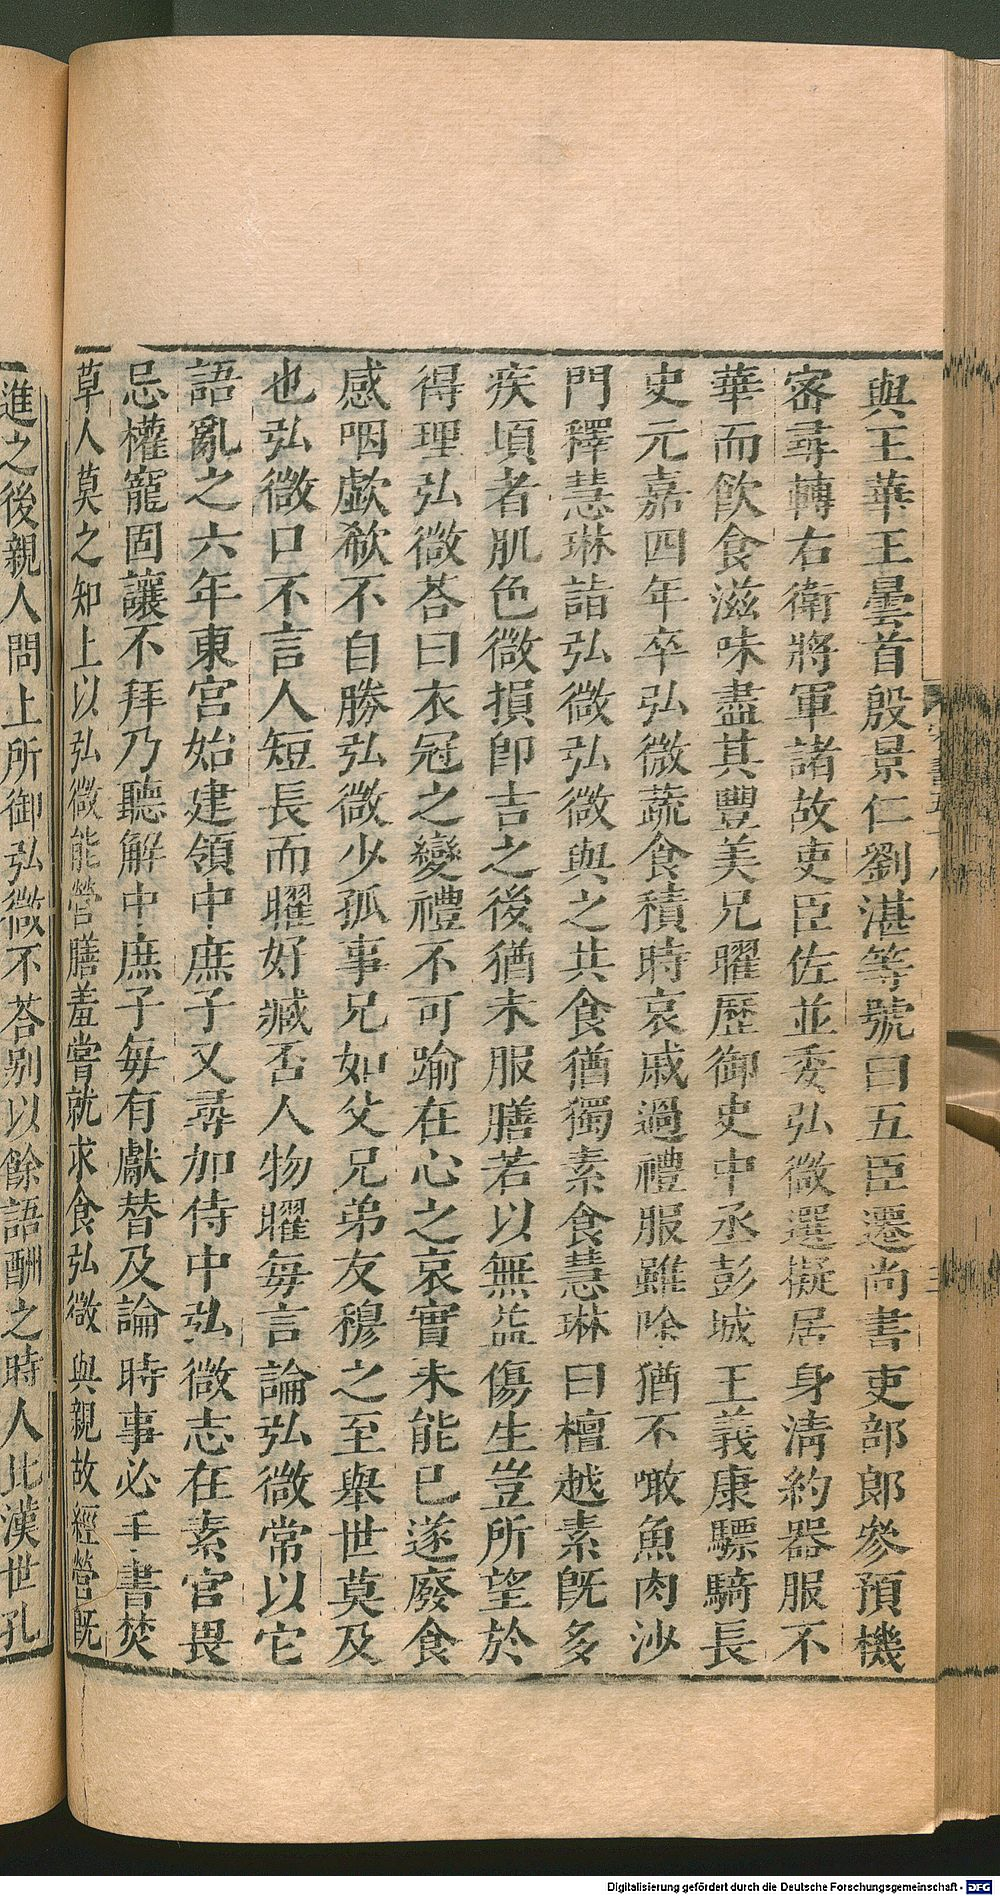 與王華王曇首殷景仁劉湛等號曰五臣遷尚書吏部郎參預機
密尋轉右衛將軍諸故吏臣佐並委弘微選擬居身清約器服不
華而飲食滋味盡其豐美兄曜歷御史中丞彭城王義康驃騎長
史元嘉四年卒弘微蔬食積時哀戚過禮服雖除猶不噉魚肉沙
門釋慧琳詣弘微弘微與之共食猶獨素食慧琳曰檀越素旣多
疾頃者肌色微損卽吉之後猶未服膳若以無益傷生豈所望於
得理弘微荅曰衣冠之變禮不可踰在心之哀實未能已遂廢食
感咽歔欷不自勝弘微少孤事兄如父兄弟友穆之至舉世莫及
也弘微口不言人短長而曜好臧否人物曜每言論弘微常以它
語亂之六年東宮始建領中庶子又尋加侍中弘微志在素官畏
忌權寵固讓不拜乃聽解中庶子每有獻替及論時事必手書焚
草人莫之知上以弘微能營膳羞嘗就求食弘微與親故經營旣
進之後親人問上所御弘微不荅別以餘語酬之時人比漢世孔
Digitalisierung gefördert durch die Deutsche Forschungsgemeinschaft - DFG